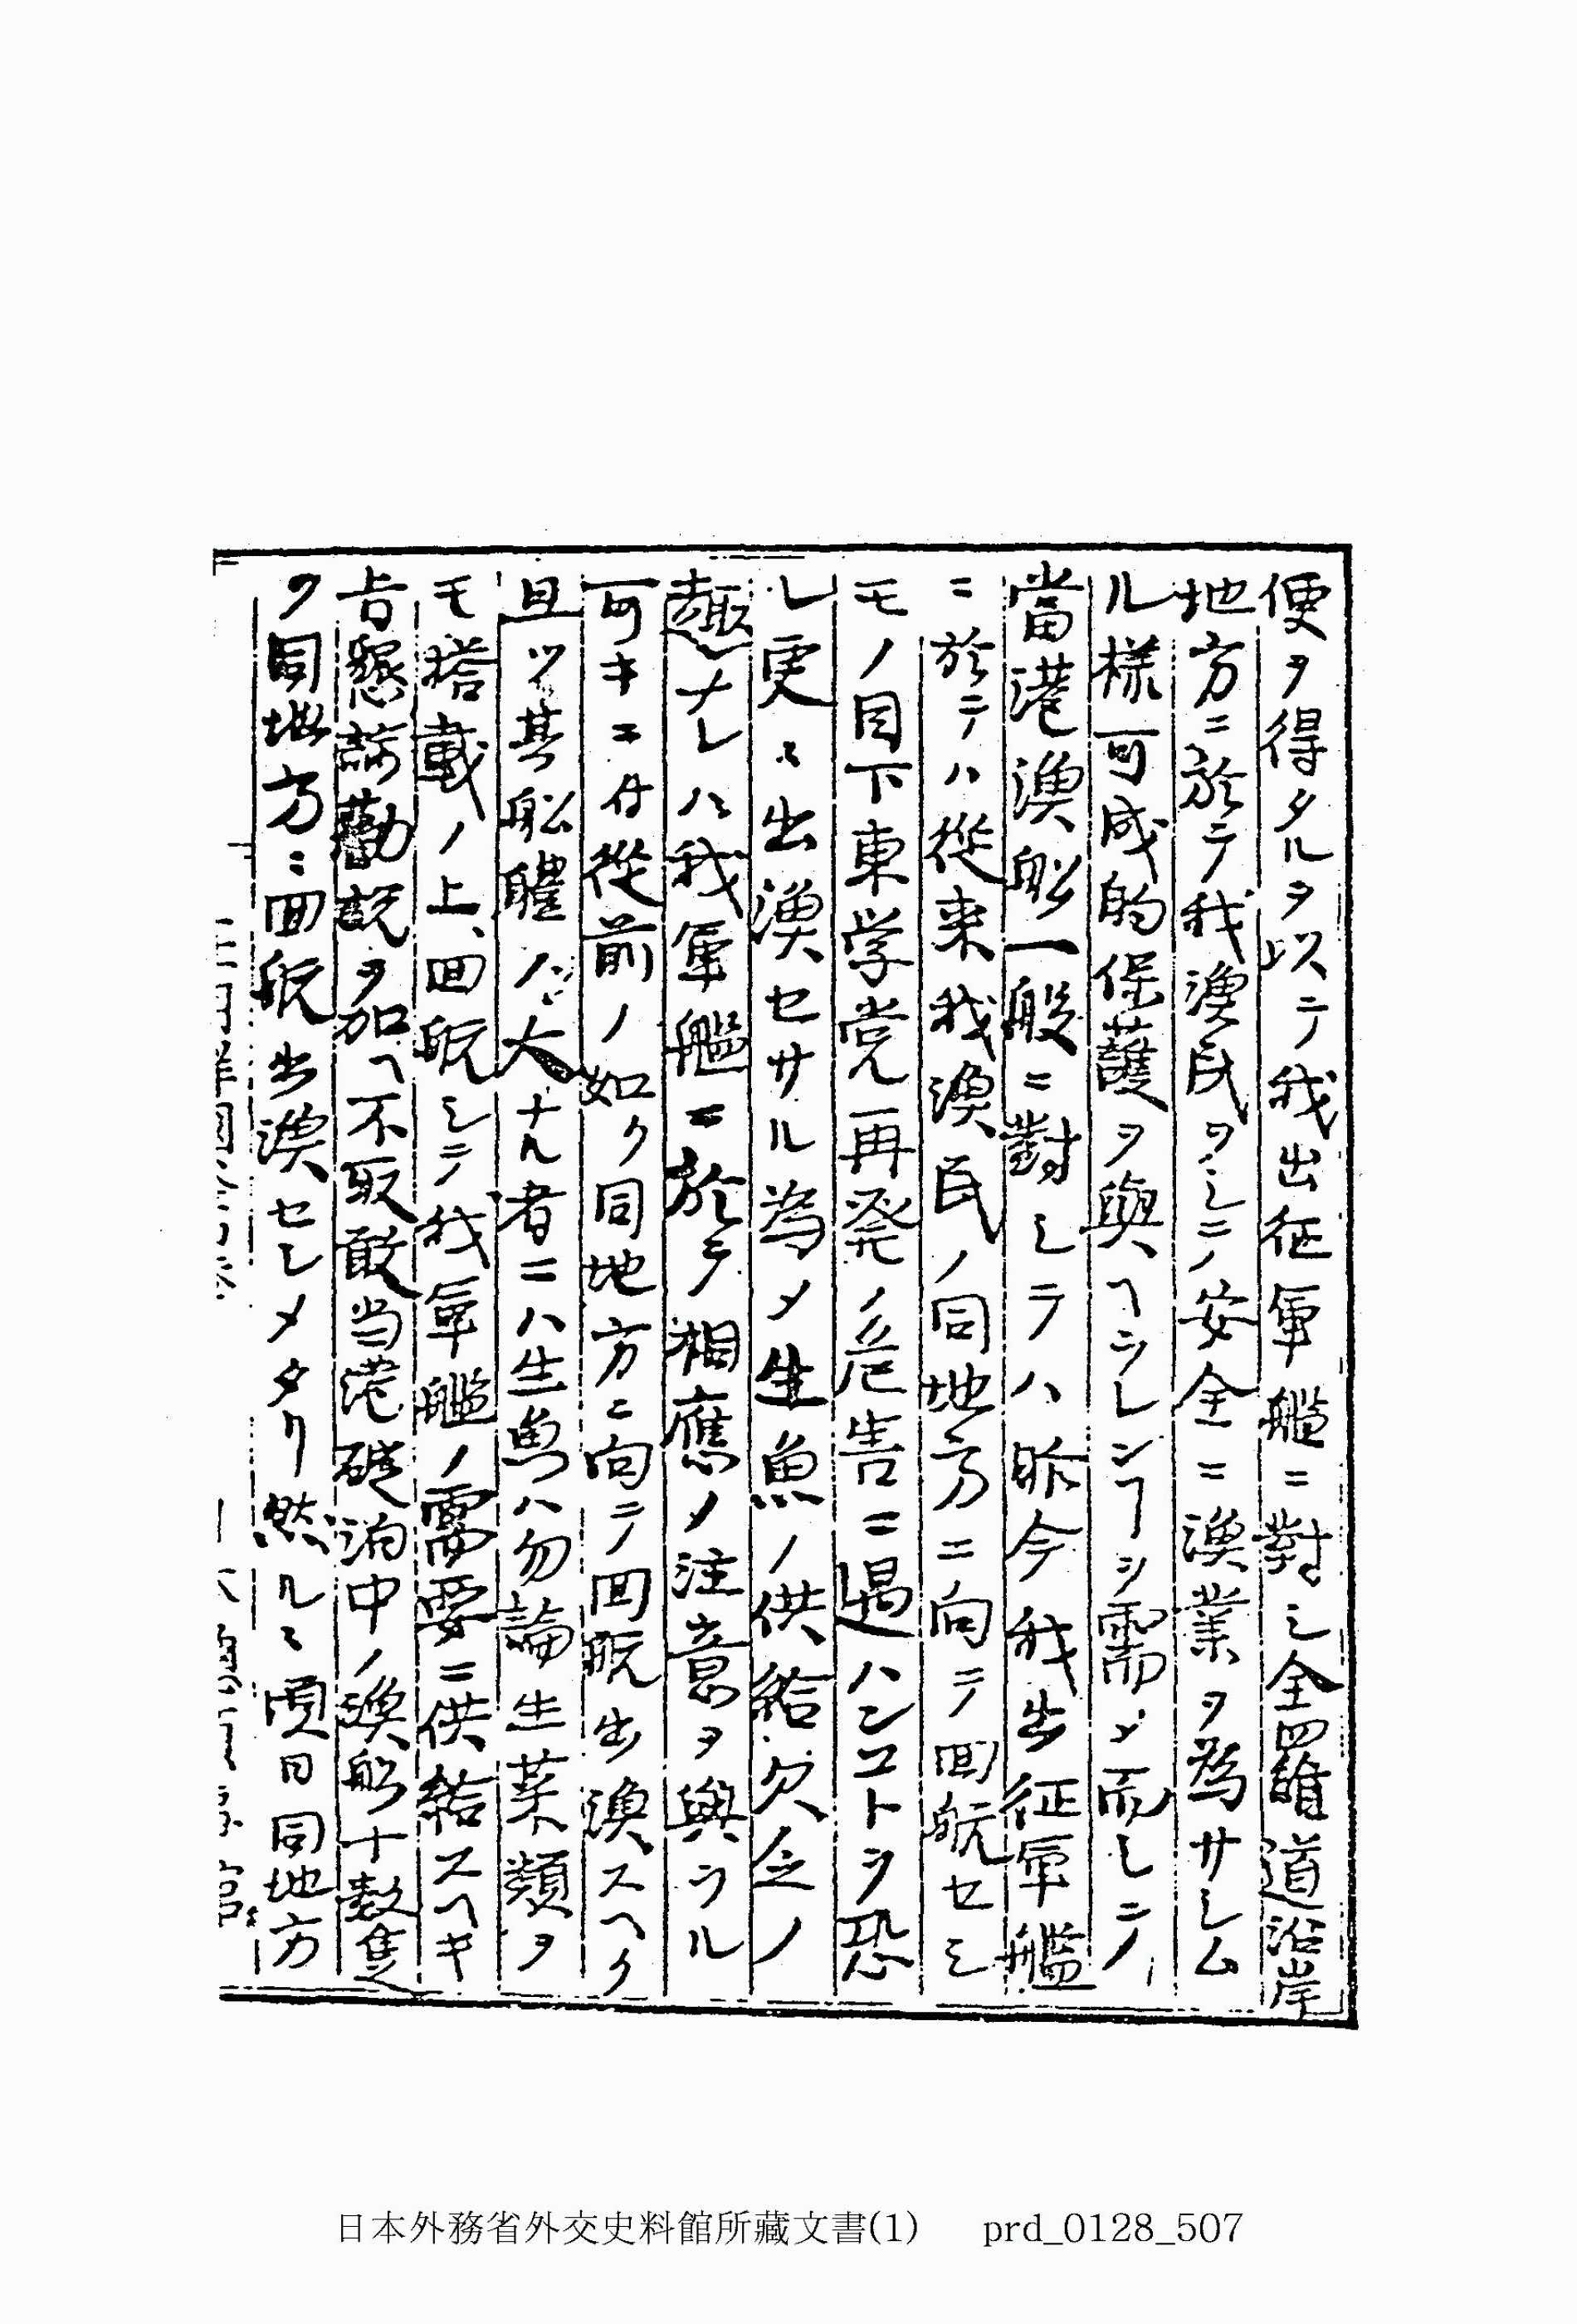 便ヲ得タルヲ以テ我出征軍艦ニ對シ全羅道沿岸
地方ニ於テ我漁民ヲシテ安全ニ漁業ヲ為サシム
ル様可成的保護ヲ與ヘラレンヿヲ需メ而シテ
當港漁船一般ニ對シテハ昨今我出征軍艦
ニ於テハ従来我漁民ノ同地方ニ向テ回航セシ
モノ目下東学党再発ノ危害ニ遇ハンコトヲ恐
レ更ニ出漁セサル為メ生魚ノ供給欠乏ノ
趣ナレハ我軍艦ニ於テ相應ノ注意ヲ與ラル
可キニ付従前ノ如ク同地方ニ向テ回航出漁スヘク
且ツ其船體ノ大ナル者ニハ生魚ハ勿論生菜類ヲ
モ搭載ノ上回航シテ我軍艦ノ需要ニ供給スヘキ
旨懇諭勸説ヲ加ヘ不取敢当港碇泊中ノ漁船十数隻
ヲ同地方ニ回航出漁セシメタリ然ルニ頃日同地方
日本外務省外交史料館所藏文書(1) prd_0128_507